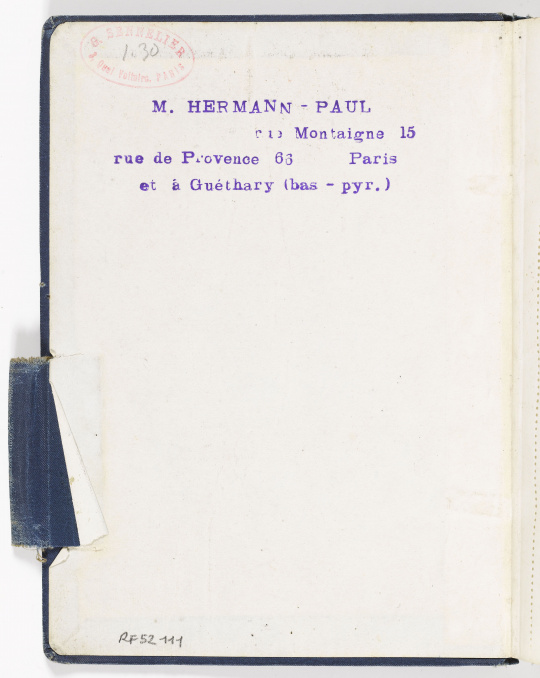 G. SENNELIER
1.30
3, Quai Voltaire. PARIS
M. HERMANN - PAUL
Montaigne 15
rue de Provence 66 Paris
et à Guéthary (bas - pyr.)
RF52 111